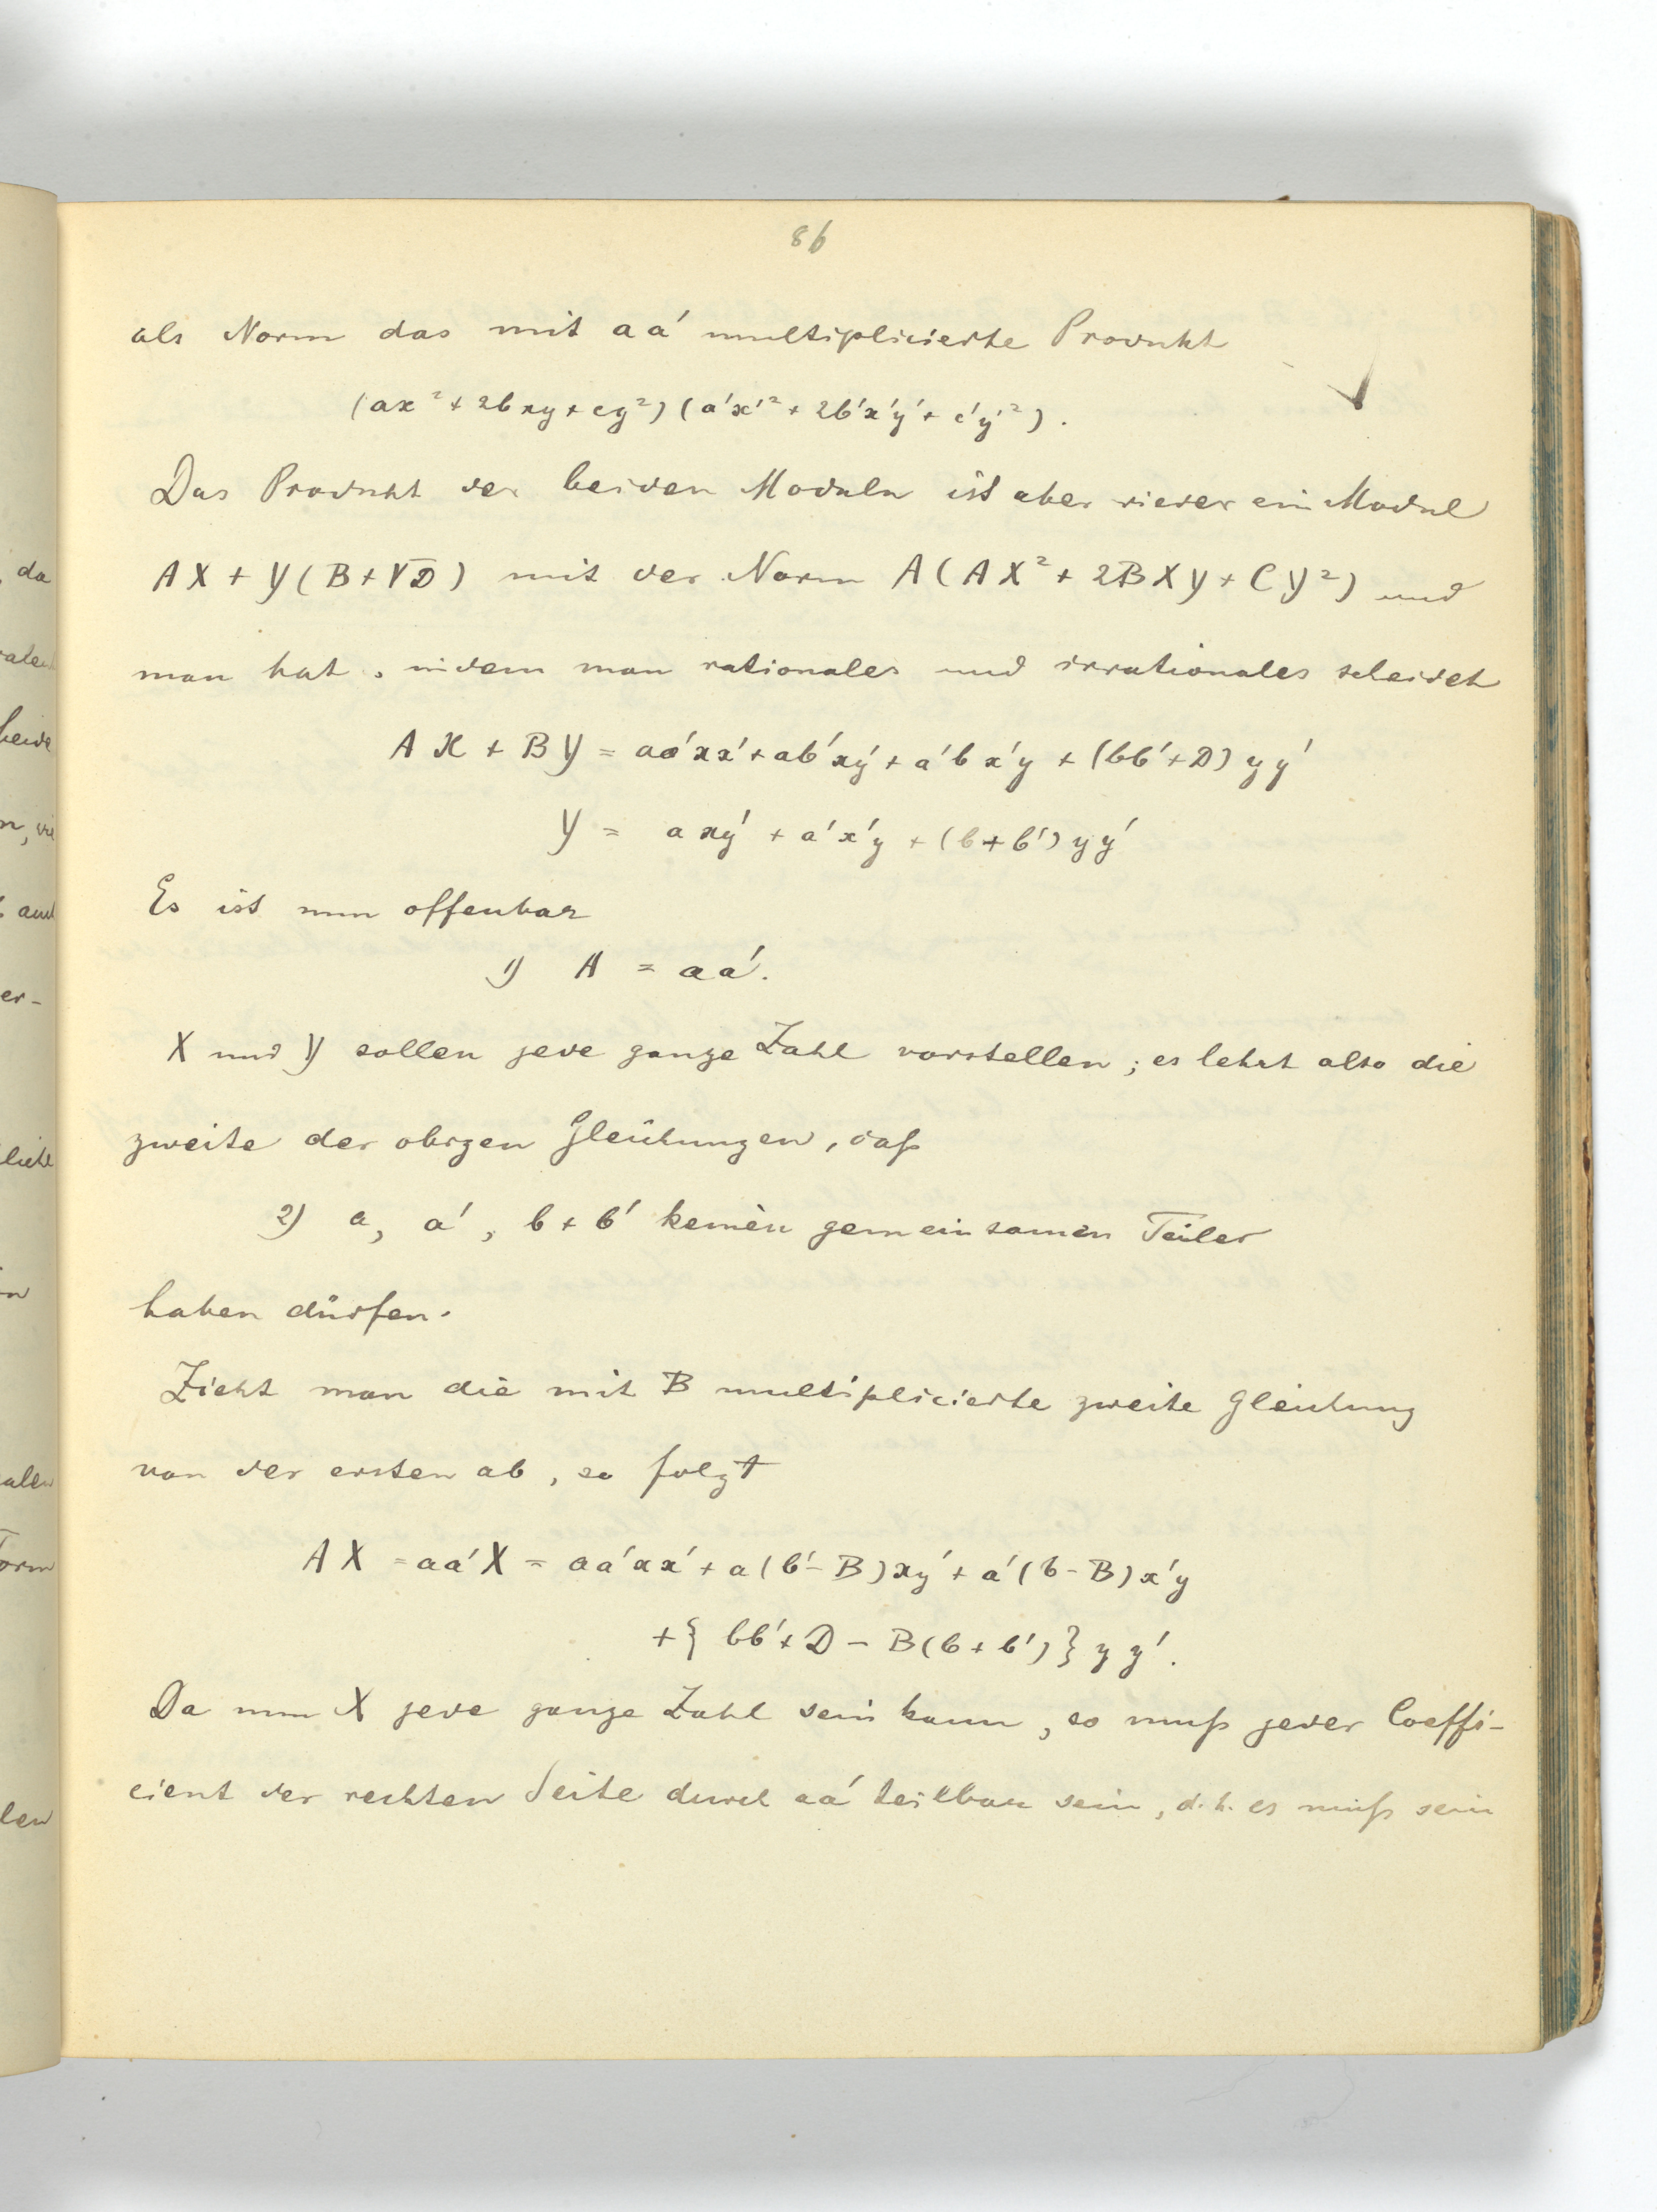 86
als Norm das mit aa' multiplicierte Produkt
(ax² + 2bxy + cy²) (a'x'² + 2b'x'y' + c'y'²).
Das Produkt der beiden Moduln ist aber wieder ein Modul
AX + Y(B + √D) mit der Norm A(AX² + 2BXY + CY²) und
man hat, indem man rationales und irrationales scheidet
AX + BY = aa'xx' + ab'xy' + a'bx'y + (bb' + D) yy'
Y = axy' + a'x'y + (b + b') yy'
Es ist nun offenbar
1) A = aa'.
X und Y sollen jede ganze Zahl vorstellen; es lehrt also die
zweite der obigen Gleichungen, daß
2) a, a', b + b' keinen gemeinsamen Teiler
haben dürfen.
Zieht man die mit B multiplicierte zweite Gleichung
von der ersten ab, so folgt
AX = aa'X = aa'xx' + a(b' - B)xy' + a'(b - B)x'y
+ { bb' + D - B(b + b') } yy'.
Da nun X jede ganze Zahl sein kann, so muß jeder Coeffi-
cient der rechten Seite durch aa' teilbar sein, d.h. es muß sein
da
beide
er-